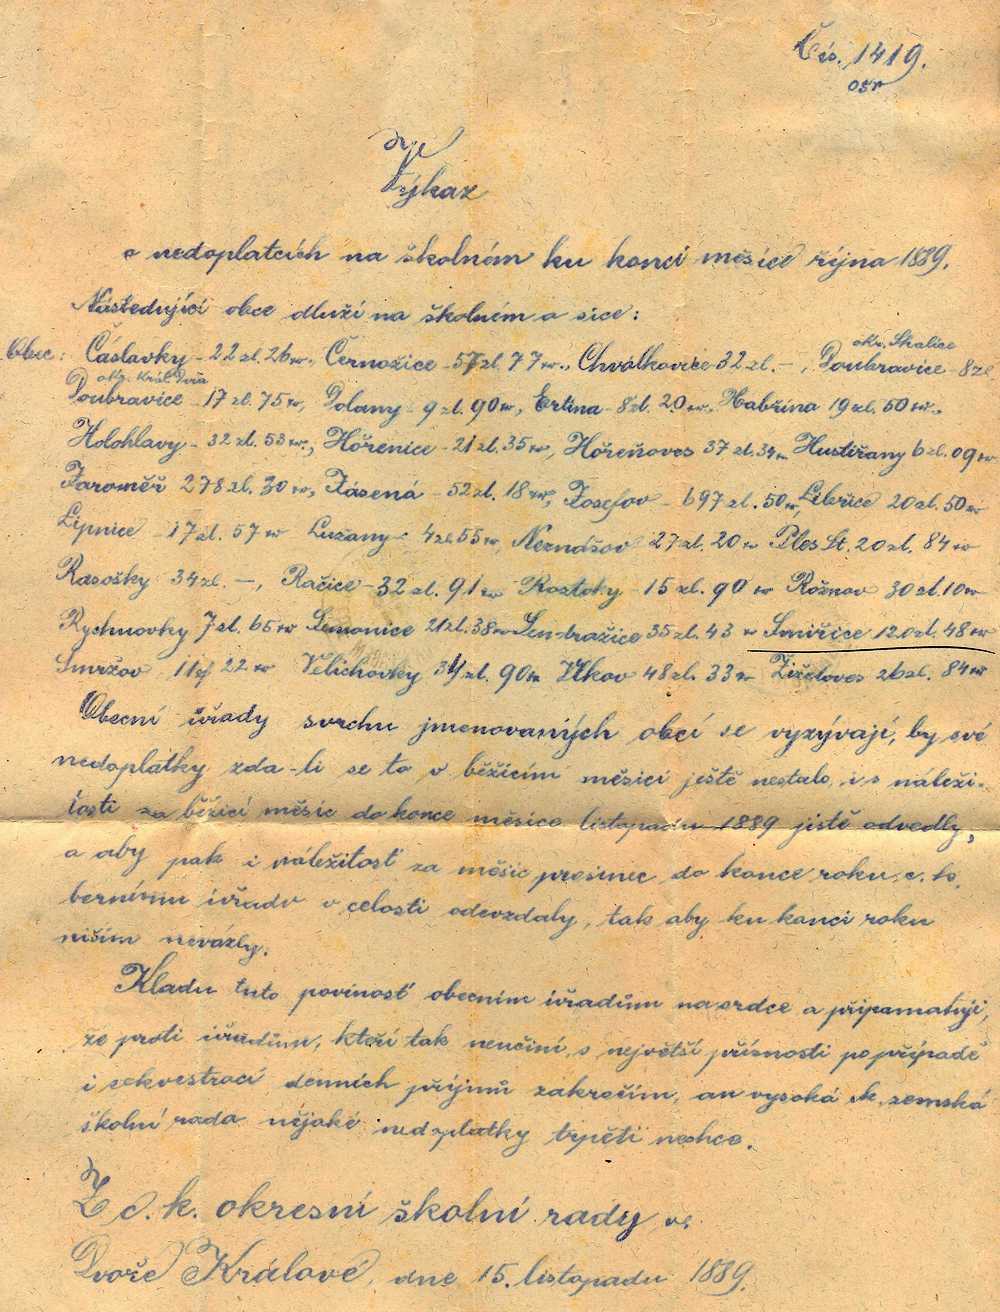 Čís. 1419.
Výkaz
o nedoplatcích na školném ku konci měsíce října 1889.
Následující obce dluží na školném a sice:
okr. Skalice
Obec: Čáslavky - 22 zl. 26 kr., Černožice - 57 zl. 77 kr., Chvalkovice 32 zl. -, Doubravice - 8 zl
okr. Král. Dvůr
Doubravice - 17 zl. 75 kr, Dolany - 9 zl. 90 kr, Ertina - 8 zl. 20 kr, Habřina 19 zl. 50 kr.,
Holohlavy - 32 zl. 53 kr., Hořenice - 21 zl. 35 kr, Hořeňoves 37 zl. 34 kr Hustířany 6 zl. 09 kr
Jaroměř 278 zl. 30 kr, Jásená - 52 zl. 18 kr, Josefov - 697 zl. 50 kr, Libřice 20 zl. 50 kr
Lipnice - 17 zl. 57 kr Lužany - 4 zl 55 kr, Neznášov 27 zl. 20 kr Ples St. 20 zl. 84 kr
Rasošky 34 zl. -, Račice - 32 zl. 91 kr Roztoky - 15 zl. 90 kr Rožnov 30 zl. 10 kr
Rychnovky 7 zl. 65 kr Semonice 21 zl. 38 kr Sendražice 35 zl. 43 kr Smiřice 120 zl. 48 kr
Smržov 11 zl 22 kr Velichovky 34 zl. 90 kr Vlkov 48 zl. 33 kr Žiželoves 26 zl. 84 kr
Obecní úřady svrchu jmenovaných obcí se vyzývají, by své
nedoplatky zda-li se to v běžícím měsíci ještě nestalo, i s náleži-
tostí za běžící měsíc do konce měsíce listopadu 1889 jistě odvedly,
a aby pak i náležitosť za měsíc prosinec do konce roku c. k.
bernímu úřadu v celosti odevzdaly, tak aby ku konci roku
ničím nevázly.
Kladu tuto povinosť obecním úřadům na srdce a připamatuji,
že proti úřadům, kteří tak neučiní, s největší přísností po případě
i sekvestrací denních příjmů zakročím, an vysoká ck. zemská
školní rada nějaké nedoplatky trpěti nechce.
Z c. k. okresní školní rady ve
Dvoře Králové, dne 15. listopadu 1889.